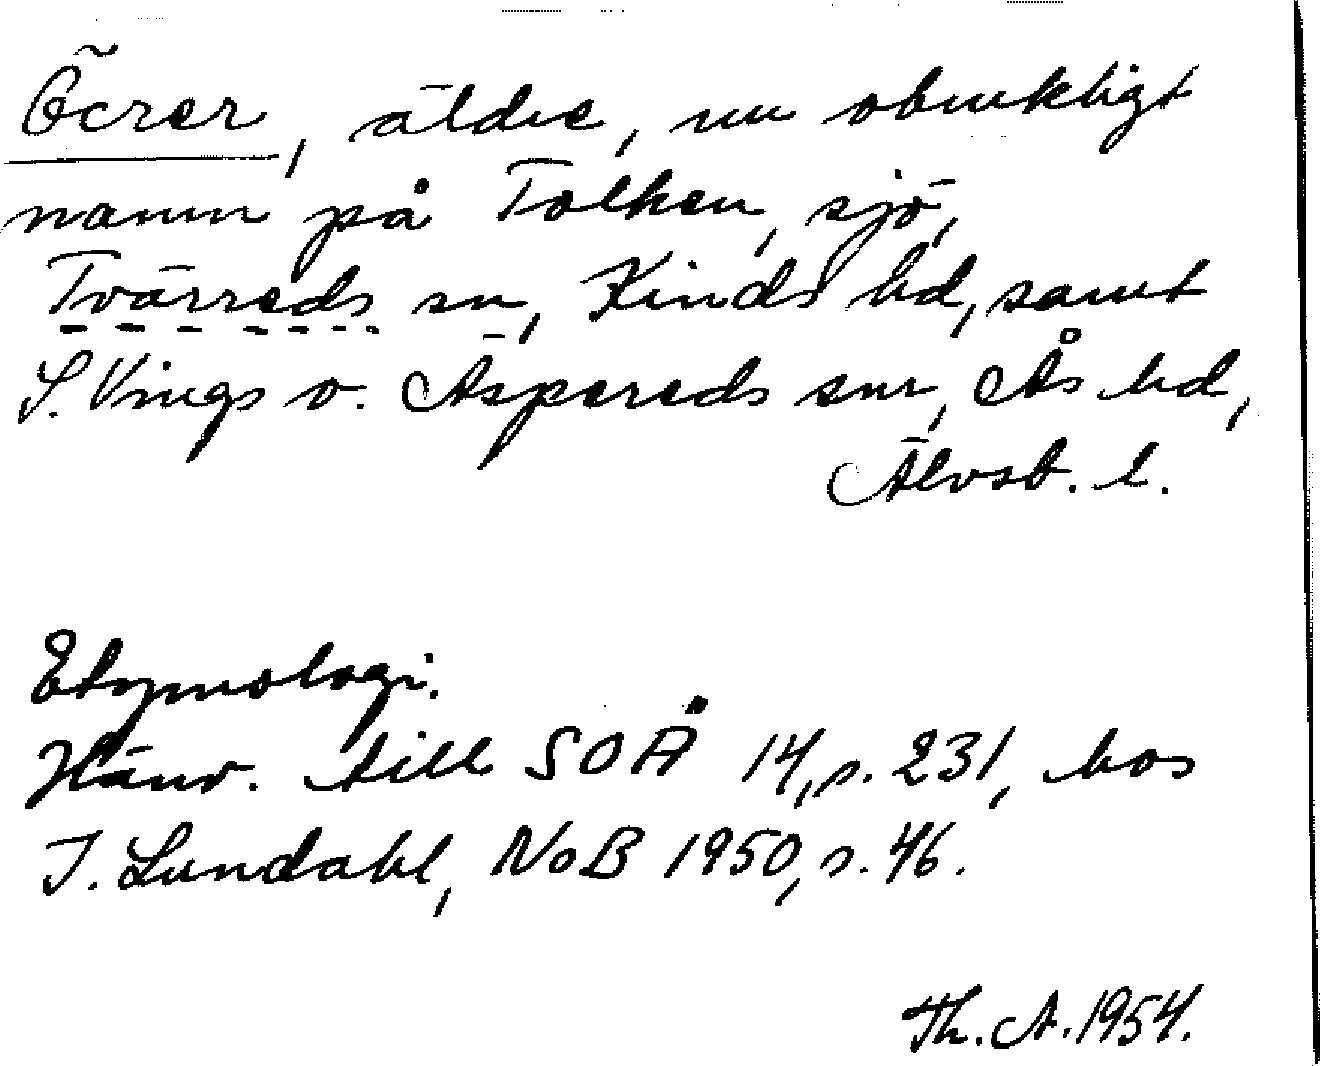 Öcrer, äldre, nu obrukligt
namn på Tolken, sjö,
Tvärreds sn, Kinds hd, samt
S. Vings o. Äspereds snr, Ås hd,
Älvsb. l.
Etymologi.
Hänv. till SOÄ 14, s. 231, hos
I. Lundahl, NoB 1950, s. 46.
Th. A. 1954.